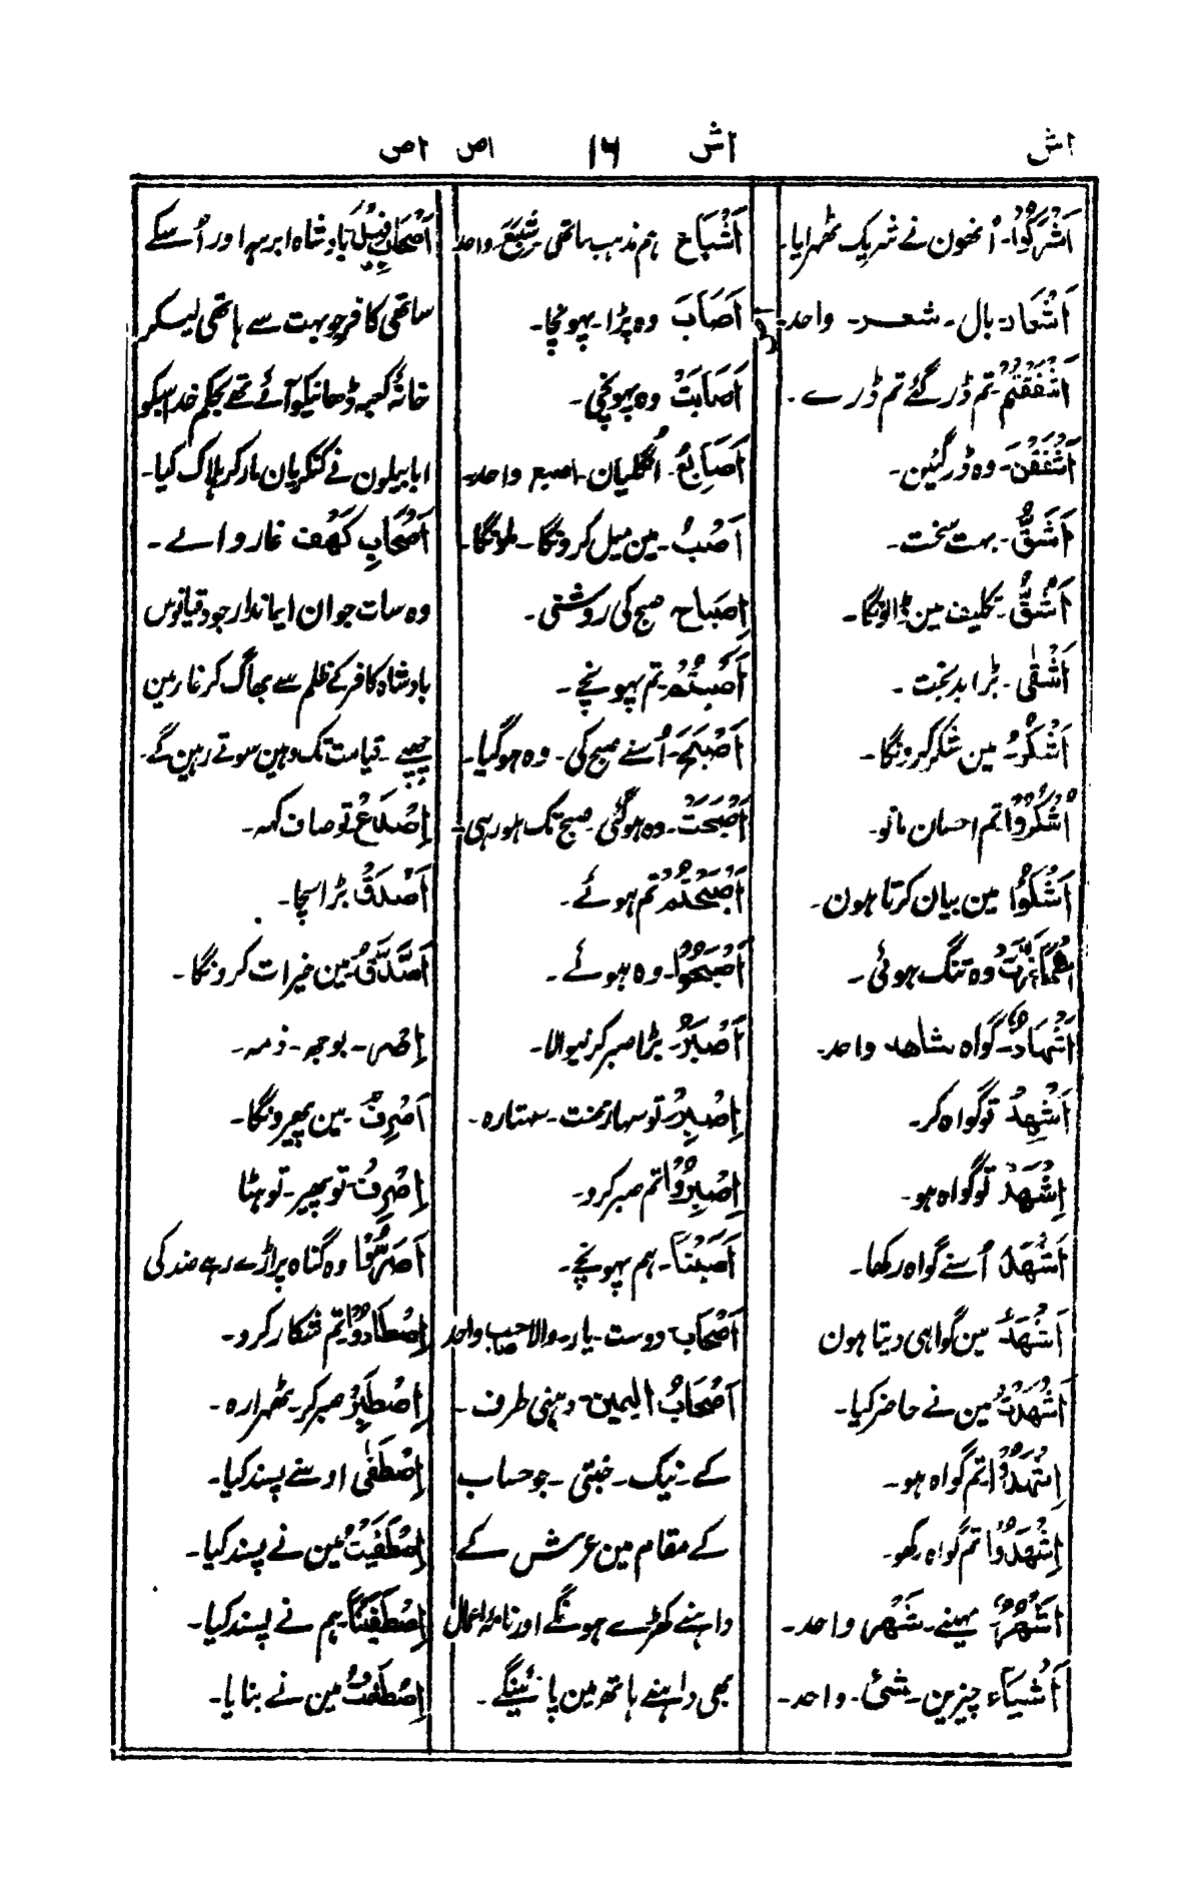 اش
اش
۱۶
اص
اص
اَشْرَكُوْا۔ اُنھون نے شریک ٹھہرایا۔
اَشْعَار۔ بال۔ شعر۔ واحد۔
اَشْفَقْتُمْ۔ تم ڈر گئے تم ڈرے۔
اَشْفَقْنَ۔ وہ ڈر گئین۔
اَشَقُّ۔ بہت سخت۔
اَشُقُّ۔ تکلیف مین ڈالونگا۔
اَشْقٰی۔ بڑا بدبخت۔
اَشْكُرُ۔ مین شکر کرونگا۔
اُشْكُرُوْا تم احسان مانو۔
اَشْكُوْا مین بیان کرتا ہون۔
وہ تنگ ہوئی۔
اَشْهَادُ۔ گواہ شاھد واحد۔
اَشْهِدْ تو گواہ کر۔
اِشْهَدْ تو گواہ ہو۔
اَشْهَدَ اُسنے گواہ رکھا۔
اَشْهَدُ مین گواہی دیتا ہون
اَشْهَدْتُ مین نے حاضر کیا۔
اِشْهَدُوْا تم گواہ ہو۔
اِشْهَدُوْا تم گواہ رکھو۔
اَشْهُرٌ مہینے۔ شَهْر واحد۔
اَشْیَآء چیزین۔ شئ۔ واحد۔
اَشْیَاع ہم مذہب ساتھی واحد
اَصَابَ وہ پڑا۔ پہونچا۔
اَصَابَتْ وہ پہونچی۔
اَصَابِعُ۔ اُنگلیان۔ اصبع واحد۔
اَصْبُ۔ مین میل کرونگا۔ ملونگا۔
اِصْبَاح صبح کی روشنی۔
اَصَبْتُمْ۔ تم پہونچے۔
اَصْبَحَ۔ اُسنے صبح کی۔ وہ ہو گیا۔
اَصْبَحَتْ۔ وہ ہوگئی۔ صبح تک ہو رہی۔
اَصْبَحْتُمْ تم ہوئے۔
اَصْبَحُوْا۔ وہ ہوئے۔
اَصْبَرُ۔ بڑا صبر کرنیوالا۔
اِصْبِرْ تو سہار محنت۔ سہتا رہ۔
اِصْبِرُوْا تم صبر کرو۔
اَصَبْنَا۔ ہم پہونچے۔
اَصْحَاب دوست۔ یار۔ والا صاحب واحد
اَصْحَابُ الیمین۔ دہنی طرف۔
کے۔ نیک۔ بختی۔ جو حساب
کے مقام مین عرش کے
داہنے کھڑے ہونگے اور نامۂ اعمال
بھی داہنے ہاتھ مین پائینگے۔
اَصْحَابِ فِیْل بادشاہ ابرہہ اور اُسکے
ساتھی کافر جو بہت سے ہاتھی لیکر
خانۂ کعبہ ڈھانیکو آئے تھے بحکم خدا
ابابیلون نے کنکریان مار کر ہلاک کیا۔
اَصْحَابِ كَهْف غار والے۔
وہ سات جوان ایماندار جو دقیانوس
بادشاہ کافر کے ظلم سے بھاگ کر غار مین
چھپے۔ قیامت تک وہین سوتے رہین گے۔
اِصْدَعْ تو صاف کہہ۔
اَصْدَقُ بڑا سچا۔
اَصَّدَّقَ۔ مین خیرات کرونگا۔
اِصْر۔ بوجھ۔ ذمہ۔
اَصْرِفُ۔ مین پھیرونگا۔
اِصْرِفْ۔ تو پھیر۔ تو ہٹا
اَصَرُّوْا وہ گناہ پر اڑے رہے ضد کی
اِصْطَادُوْا تم شکار کرو۔
اِصْطَبِرْ صبر کر۔ ٹھہرا رہ۔
اِصْطَفٰی اوسنے پسند کیا۔
اِصْطَفَیْتُ مین نے پسند کیا۔
اِصْطَفَیْنَا۔ ہم نے پسند کیا۔
مین نے بنایا۔